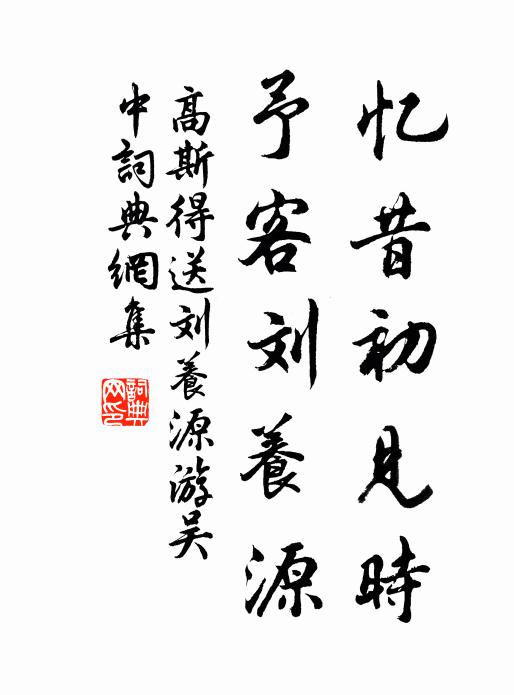 忆昔初见時
予客刘養源
高斯得送刘養源游吴
中詞典網集
詞典
网印